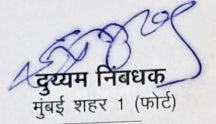 दुय्यम निबंधक
मुंबई शहर 1 (फोर्ट)